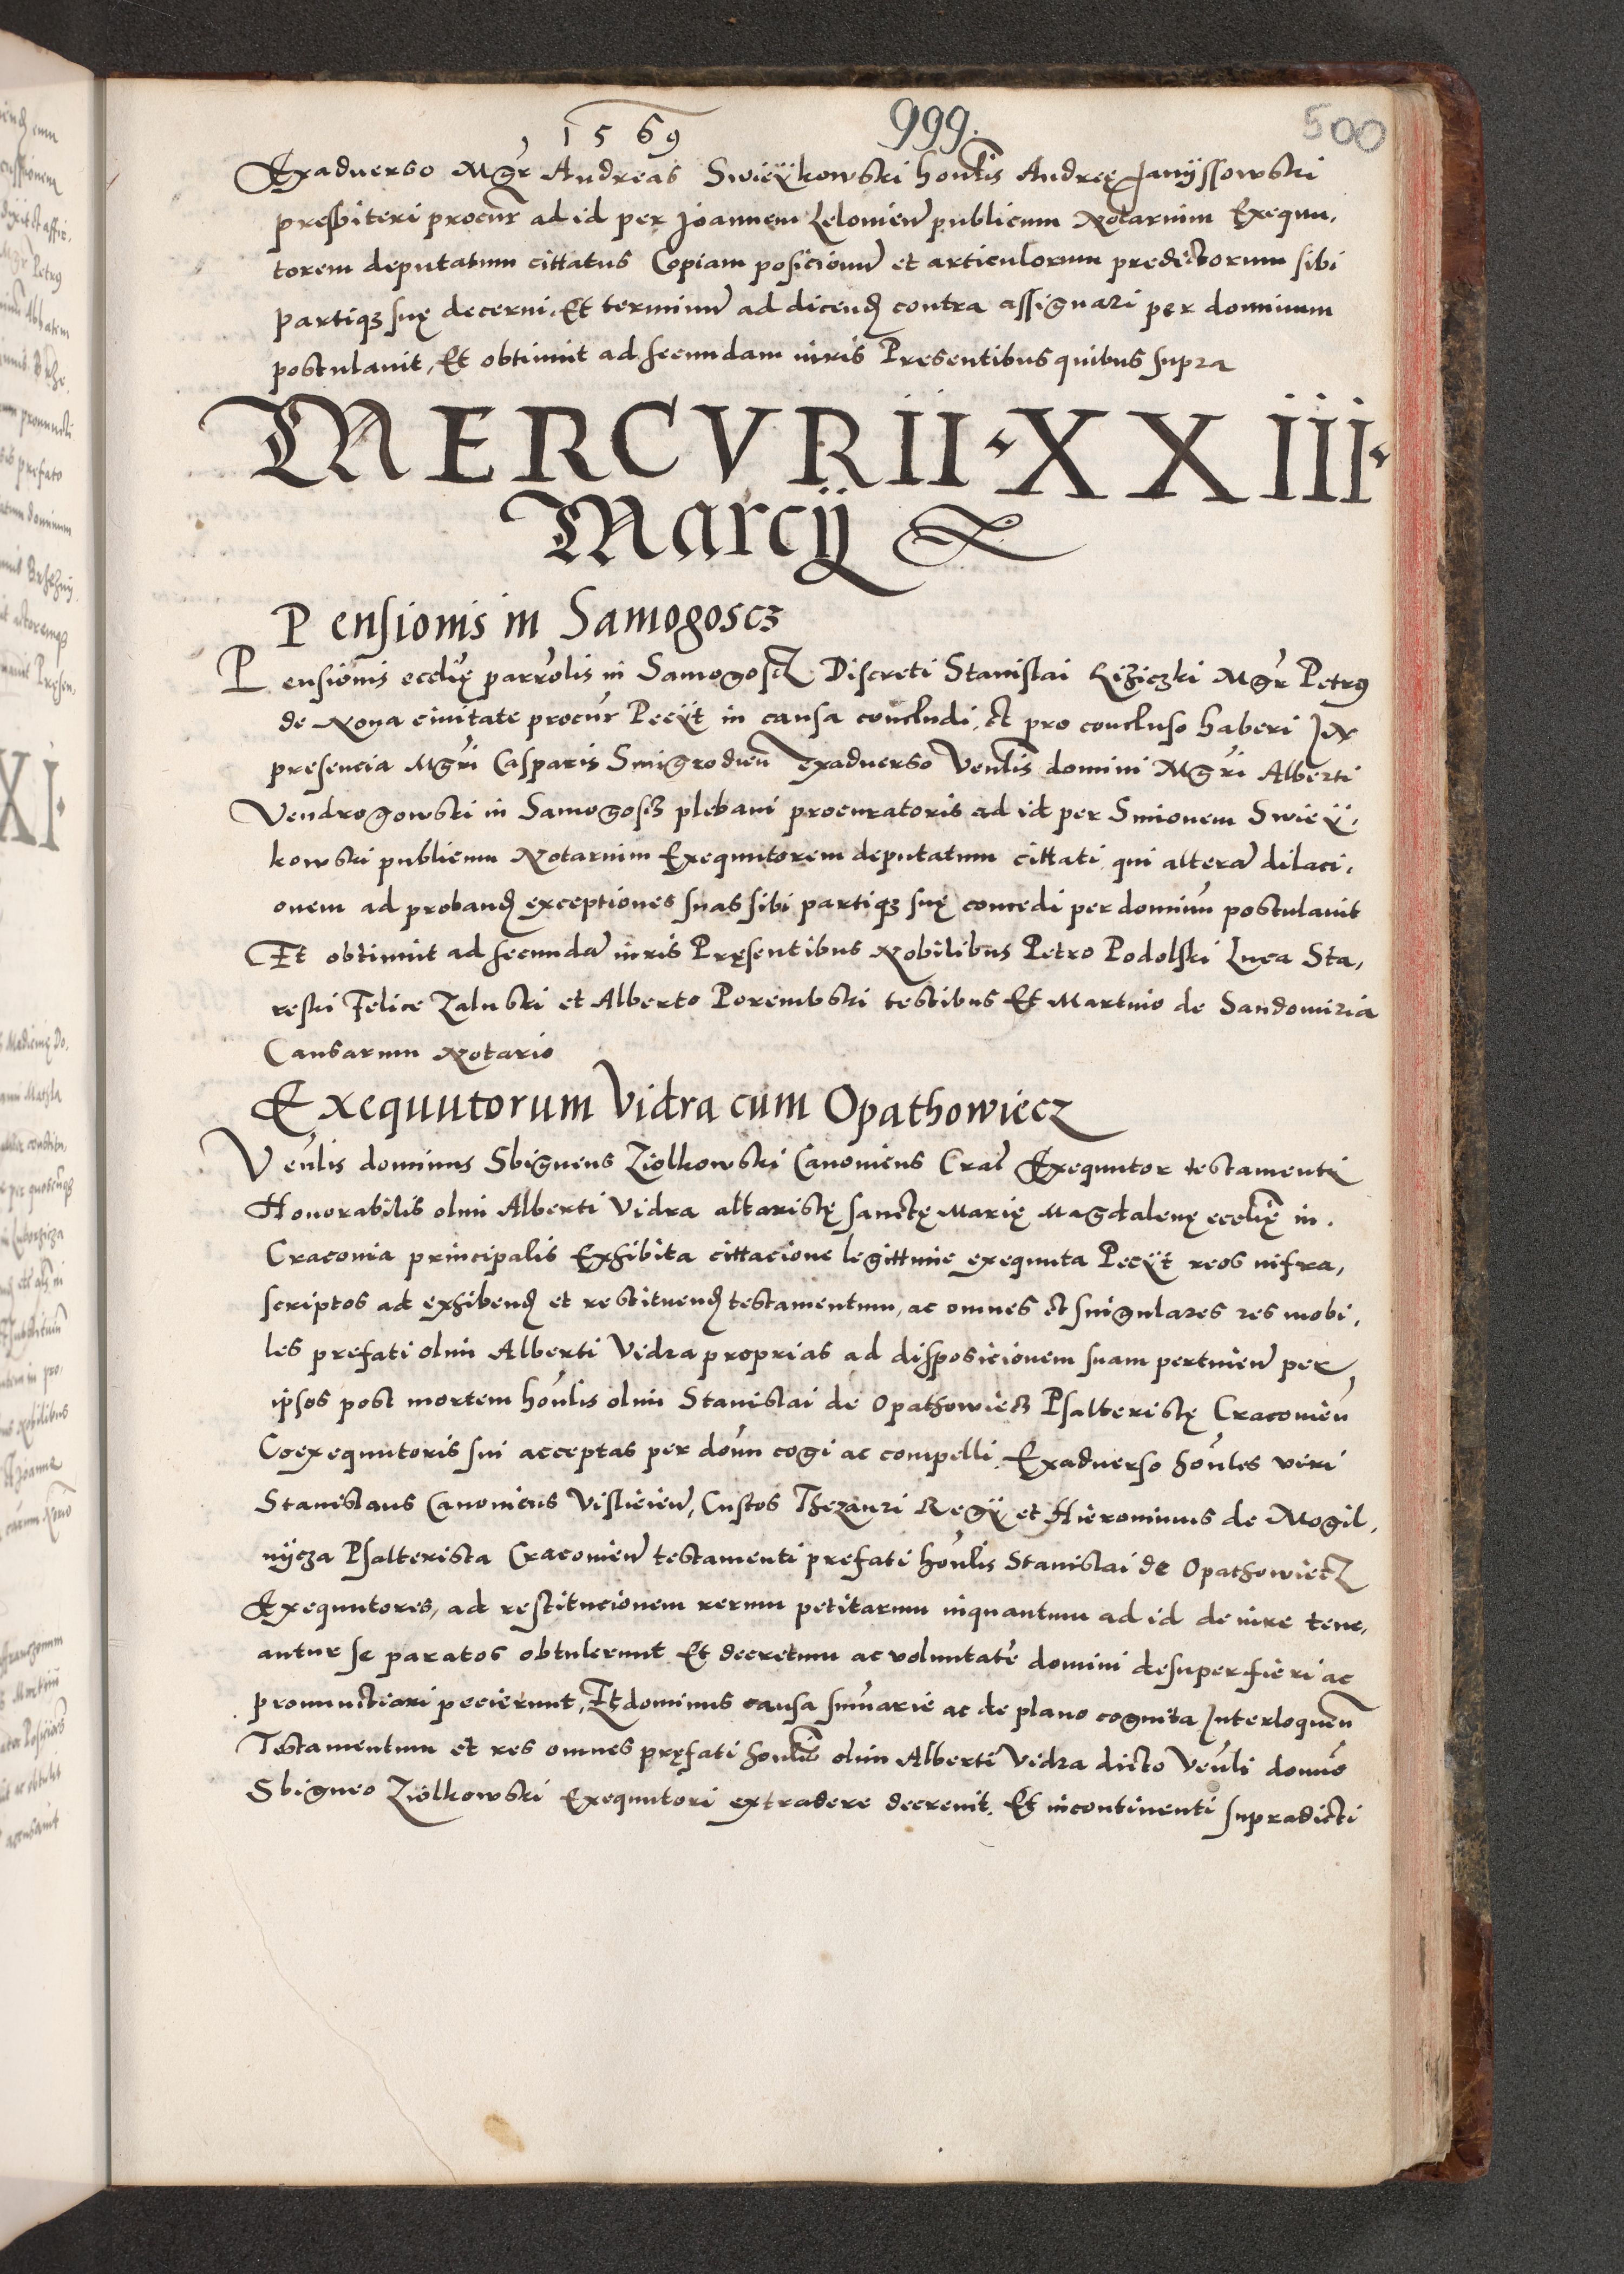 1569 999. 500
Exaduerso Mgr Andreas Swieÿkowski honlis Andreę Janÿssowski
presbiteri procur ad id per Joannem Lelowien publicum Notarium Exequu,
torem deputatum cittatus Copiam posicionu et articulorum predictorum sibi
partiqз suę decerni. Et terminu ad dicend contra assignari per dominum
postulauit, Et obtinuit ad secundam iuris Presentibus quibus supra
MERCVRII · XXIII ·
Marcÿ
Pensionis in Samogoscz
Pensionis ecclię parrolis in Samogoscz Discreti Stanislai Liziczki Mgr Petrus
de Noua ciuitate procur Pecÿt in causa concludi, et pro concluso haberi In
presencia Mgri Casparis Smigrodien Exaduerso Venlis domini Mgri Alberti
Vendrogowski in Samogoscz plebani procuratoris ad id per Simonem Swieÿ,
kowski publicum Notarium Exequutorem deputatum cittati qui altera dilaci,
onem ad proband exceptiones suas sibi partiqз suę concedi per dominu postulauit
Et obtinuit ad secunda iuris Pręsentibus Nobilibus Petro Podolski Luca Sta,
reski Felice Zaluski et Alberto Porembski testibus Et Martino de Sandomiria
Causarum Notario
Exequutorum Vidra cum Opathowiecz
Venlis dominus Sbigneus Ziolkowski Canonicus Crac Exequutor testamenti
Honorabilis olim Alberti Vidra altaristę sanctę Marię Magdalenę ecclię in
Craconia principalis Exhibita cittacione legittime exequuta Pecÿt reos infra,
scriptos ad exhibend et restituend testamentum, ac omnes et singulares res mobi,
les prefati olim Alberti Vidra proprias ad disposicionem suam pertinen per
ipsos post mortem honlis olim Stanislai de Opathowiecz Psalteristę Cracouien
Coexequutoris sui acceptas per doun cogi ac compelli. Exaduerso honles viri
Stanislaus Canonicus Vislicien, Custos Thezauri Regÿ et Hieronimus de Mogil,
nÿcza Psalterista Cracouien testamenti prefati honlis Stanislai de Opathowiecz
Exequutores, ad restitucionem rerum petitarum inquantum ad id de iure tene,
antur se paratos obtulerunt Et decretum ac voluntate domini desuper fieri ac
pronunctiari pecierunt, Et dominus causa sumarie ac de plano cognita Interloquen
Testamentum et res omnes pręfati honlis olim Alberti Vidra dicto Venli domno
Sbigneo Ziolkowski Exequutori extradere decreuit. Et incontinenti supradicti